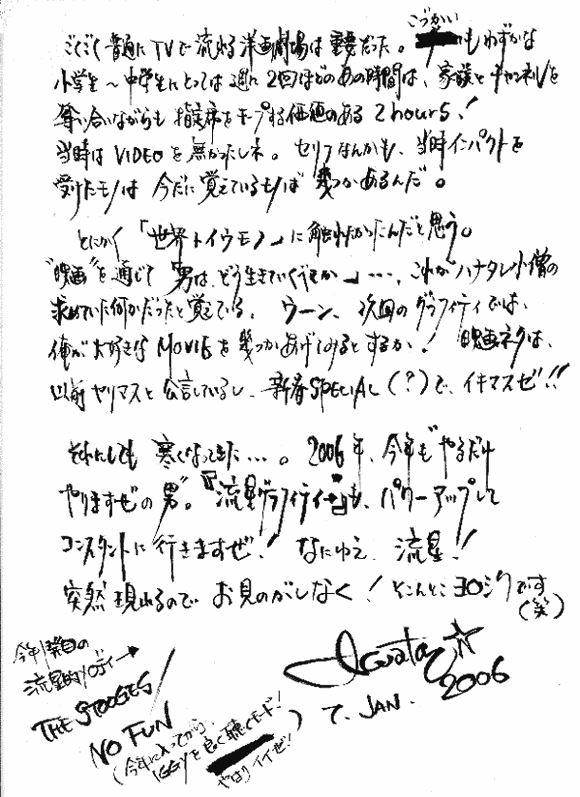 こづかい
ごくごく普通にTVで流れる洋画劇場は重要だった。もわずかな
小学生〜中学生にとっては週に2回ほどのあの時間は、家族とチャンネルを
奪い合いながらも指定席をキープする価値のある2hours!
当時はVIDEOも無かったしネ。セリフなんかも、当時インパクトを
受けたモノは今だに覚えているモノは幾つかあるんだ。
とにかく「世界トイウモノ」に触れたかったんだと思う。
"映画"を通じて「男は、どう生きていくべきか」…、これがハナタレ小僧の
求めていた何かだったと覚えている。ウーン、次回のグラフィティでは、
俺が大好きなMOVIEを幾つかあげてみるとするか! 映画ネタは、
以前ヤリマスと公言しているし、新春SPECIAL(?)で、イキマスゼ!!
それにしても寒くなってきた…。2006年、今年も"やるだけ
やりますぜの男"。『流星グラフィティー』も、パワーアップして
コンスタントに行きますぜ! なにゆえ、流星!
突然現れるので お見のがしなく! そこんとこヨロシクです
(笑)
今年1発目の
流星的メロディー→
THE STOOGES/
NO FUN
(今年に入ってから、
IGGYを良く聴くモード!
やはりイイゼ!!)
Iwata☆
2006
7. JAN.